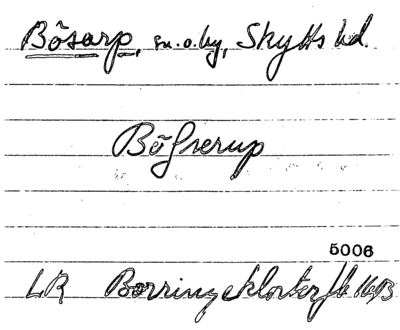 Bösarp, sn. o. by, Skytts hd.
Böserup
5006
LR Börringekloster jb 1693